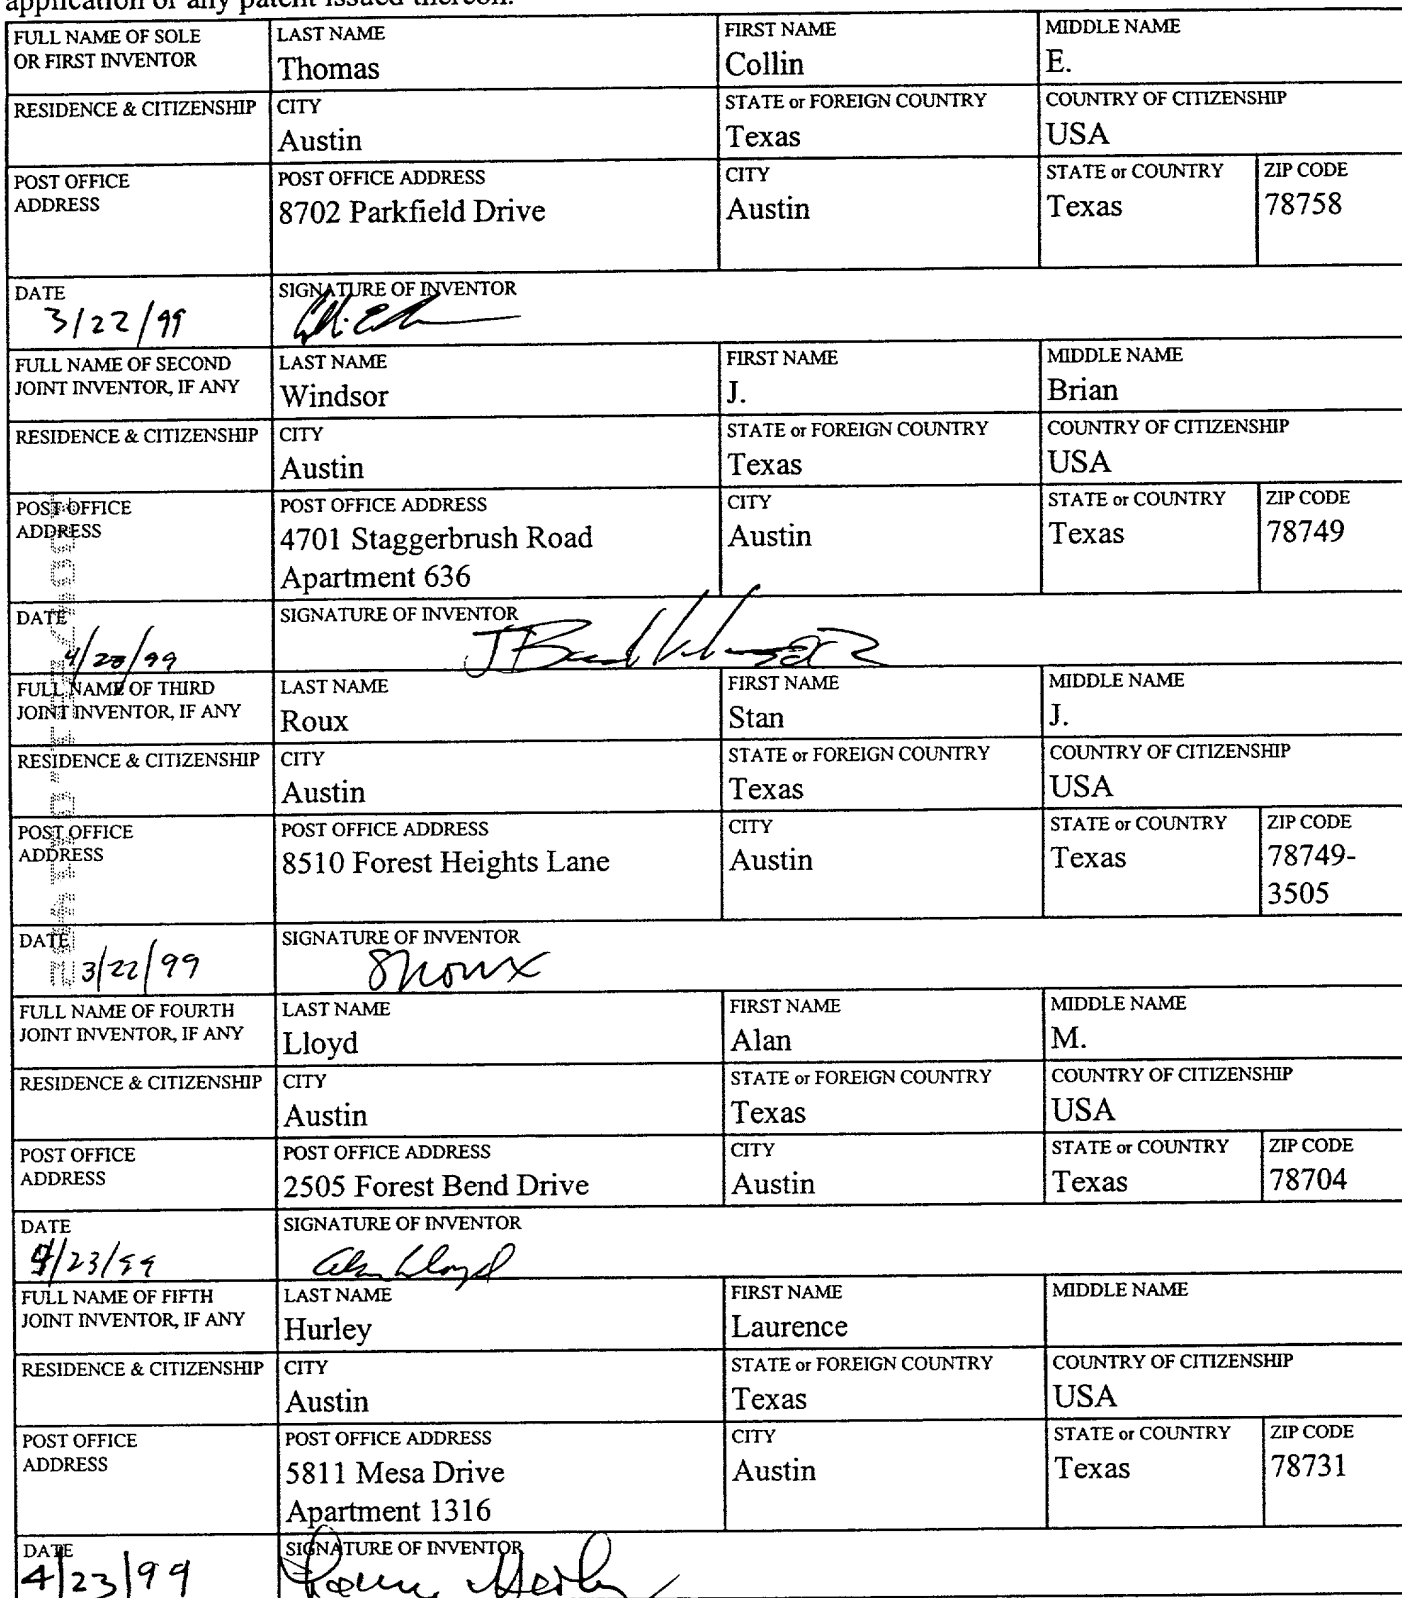 application or any patent issued thereon.
FULL NAME OF SOLE OR FIRST INVENTOR
LAST NAME
Thomas
FIRST NAME
Collin
MIDDLE NAME
E.
RESIDENCE & CITIZENSHIP
CITY
Austin
STATE or FOREIGN COUNTRY
Texas
COUNTRY OF CITIZENSHIP
USA
POST OFFICE
ADDRESS
POST OFFICE ADDRESS
8702 Parkfield Drive
CITY
Austin
STATE or COUNTRY
Texas
ZIP CODE
78758
DATE
3/22/99
SIGNATURE OF INVENTOR
FULL NAME OF SECOND
JOINT INVENTOR, IF ANY
LAST NAME
Windsor
FIRST NAME
J.
MIDDLE NAME
Brian
RESIDENCE & CITIZENSHIP
CITY
Austin
STATE or FOREIGN COUNTRY
Texas
COUNTRY OF CITIZENSHIP
USA
POST OFFICE
ADDRESS
POST OFFICE ADDRESS
4701 Staggerbrush Road
Apartment 636
CITY
Austin
STATE or COUNTRY
Texas
ZIP CODE
78749
DATE
4/20/99
SIGNATURE OF INVENTOR
FULL NAME OF THIRD
JOINT INVENTOR, IF ANY
LAST NAME
Roux
FIRST NAME
Stan
MIDDLE NAME
J.
RESIDENCE & CITIZENSHIP
CITY
Austin
STATE or FOREIGN COUNTRY
Texas
COUNTRY OF CITIZENSHIP
USA
POST OFFICE
ADDRESS
POST OFFICE ADDRESS
8510 Forest Heights Lane
CITY
Austin
STATE or COUNTRY
Texas
ZIP CODE
78749-
3505
DATE
3/22/99
SIGNATURE OF INVENTOR
SRoux
FULL NAME OF FOURTH
JOINT INVENTOR, IF ANY
LAST NAME
Lloyd
FIRST NAME
Alan
MIDDLE NAME
M.
RESIDENCE & CITIZENSHIP
CITY
Austin
STATE or FOREIGN COUNTRY
Texas
COUNTRY OF CITIZENSHIP
USA
POST OFFICE
ADDRESS
POST OFFICE ADDRESS
2505 Forest Bend Drive
CITY
Austin
STATE or COUNTRY
Texas
ZIP CODE
78704
DATE
4/23/99
SIGNATURE OF INVENTOR
Alan Lloyd
FULL NAME OF FIFTH
JOINT INVENTOR, IF ANY
LAST NAME
Hurley
FIRST NAME
Laurence
MIDDLE NAME
RESIDENCE & CITIZENSHIP
CITY
Austin
STATE or FOREIGN COUNTRY
Texas
COUNTRY OF CITIZENSHIP
USA
POST OFFICE
ADDRESS
POST OFFICE ADDRESS
5811 Mesa Drive
Apartment 1316
CITY
Austin
STATE or COUNTRY
Texas
ZIP CODE
78731
DATE
4/23/99
SIGNATURE OF INVENTOR